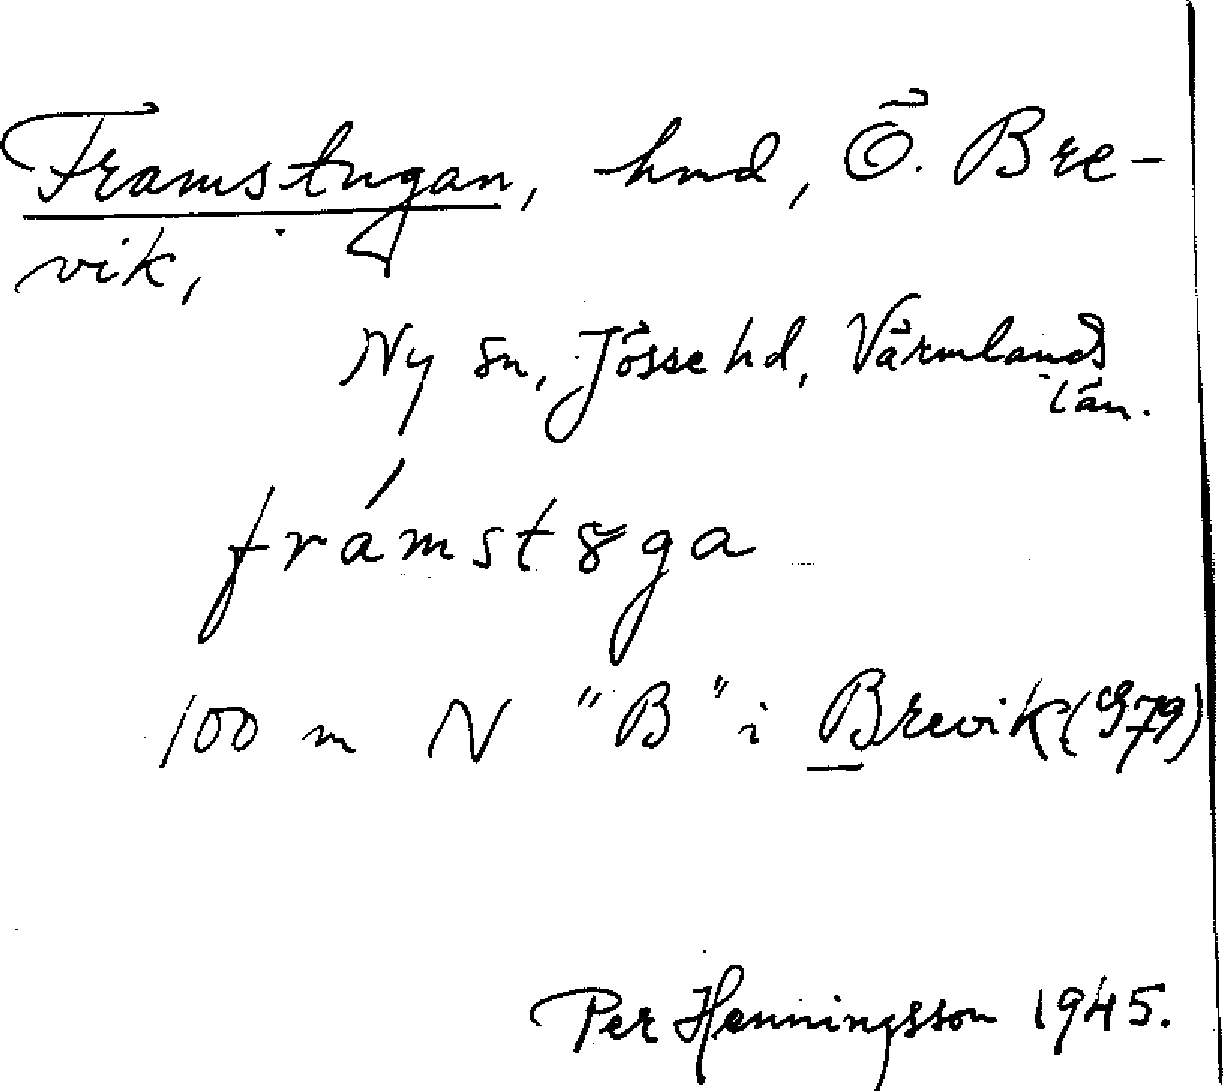 Framstugan, hmd, Ö. Bre-
vik,
Ny sn, Jösse hd, Värmlands
län.
frámstȣga
100 m N "B" i Brevik (979)
Per Henningsson 1945.